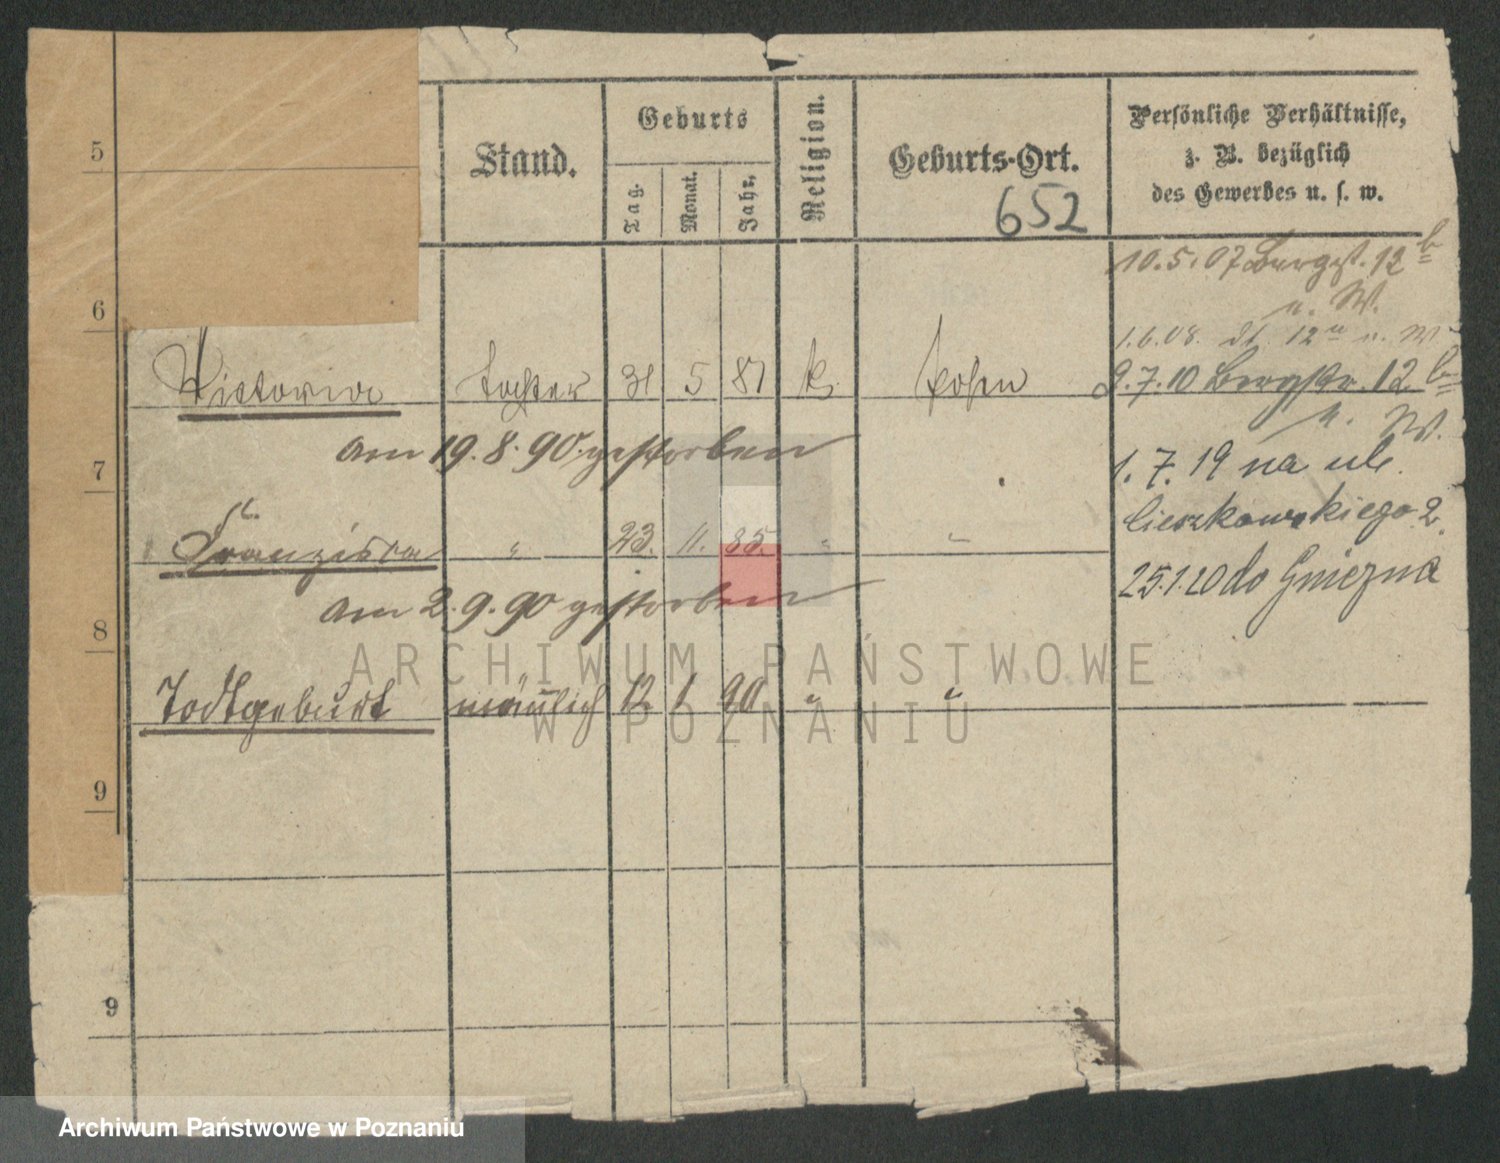 Stand.
Geburts
Tag.
Monat.
Jahr.
Religion.
Geburts-Ort.
652
Persönliche Verhältnisse,
z. B. bezüglich
des Gewerbes u. s. w.
5
6
10.5.07 Bergst. 12 b
u. W.
1.6.08. dt. 12 u. W
Victoria Tochter 31 5 87 k. Posen
2.7.10 Bergstr. 12 b
u. W.
am 19.8.90. gestorben
7
1.7.19 na ul.
Cieszkowskiego 2.
Franziska " 23. 11. 85. " "
25.1.20 do Gniezna
am 2.9.90 gestorben
8
Todtgeburt männlich 12 1 90 " "
9
9
ARCHIWUM PAŃSTWOWE
W POZNANIU
Archiwum Państwowe w Poznaniu